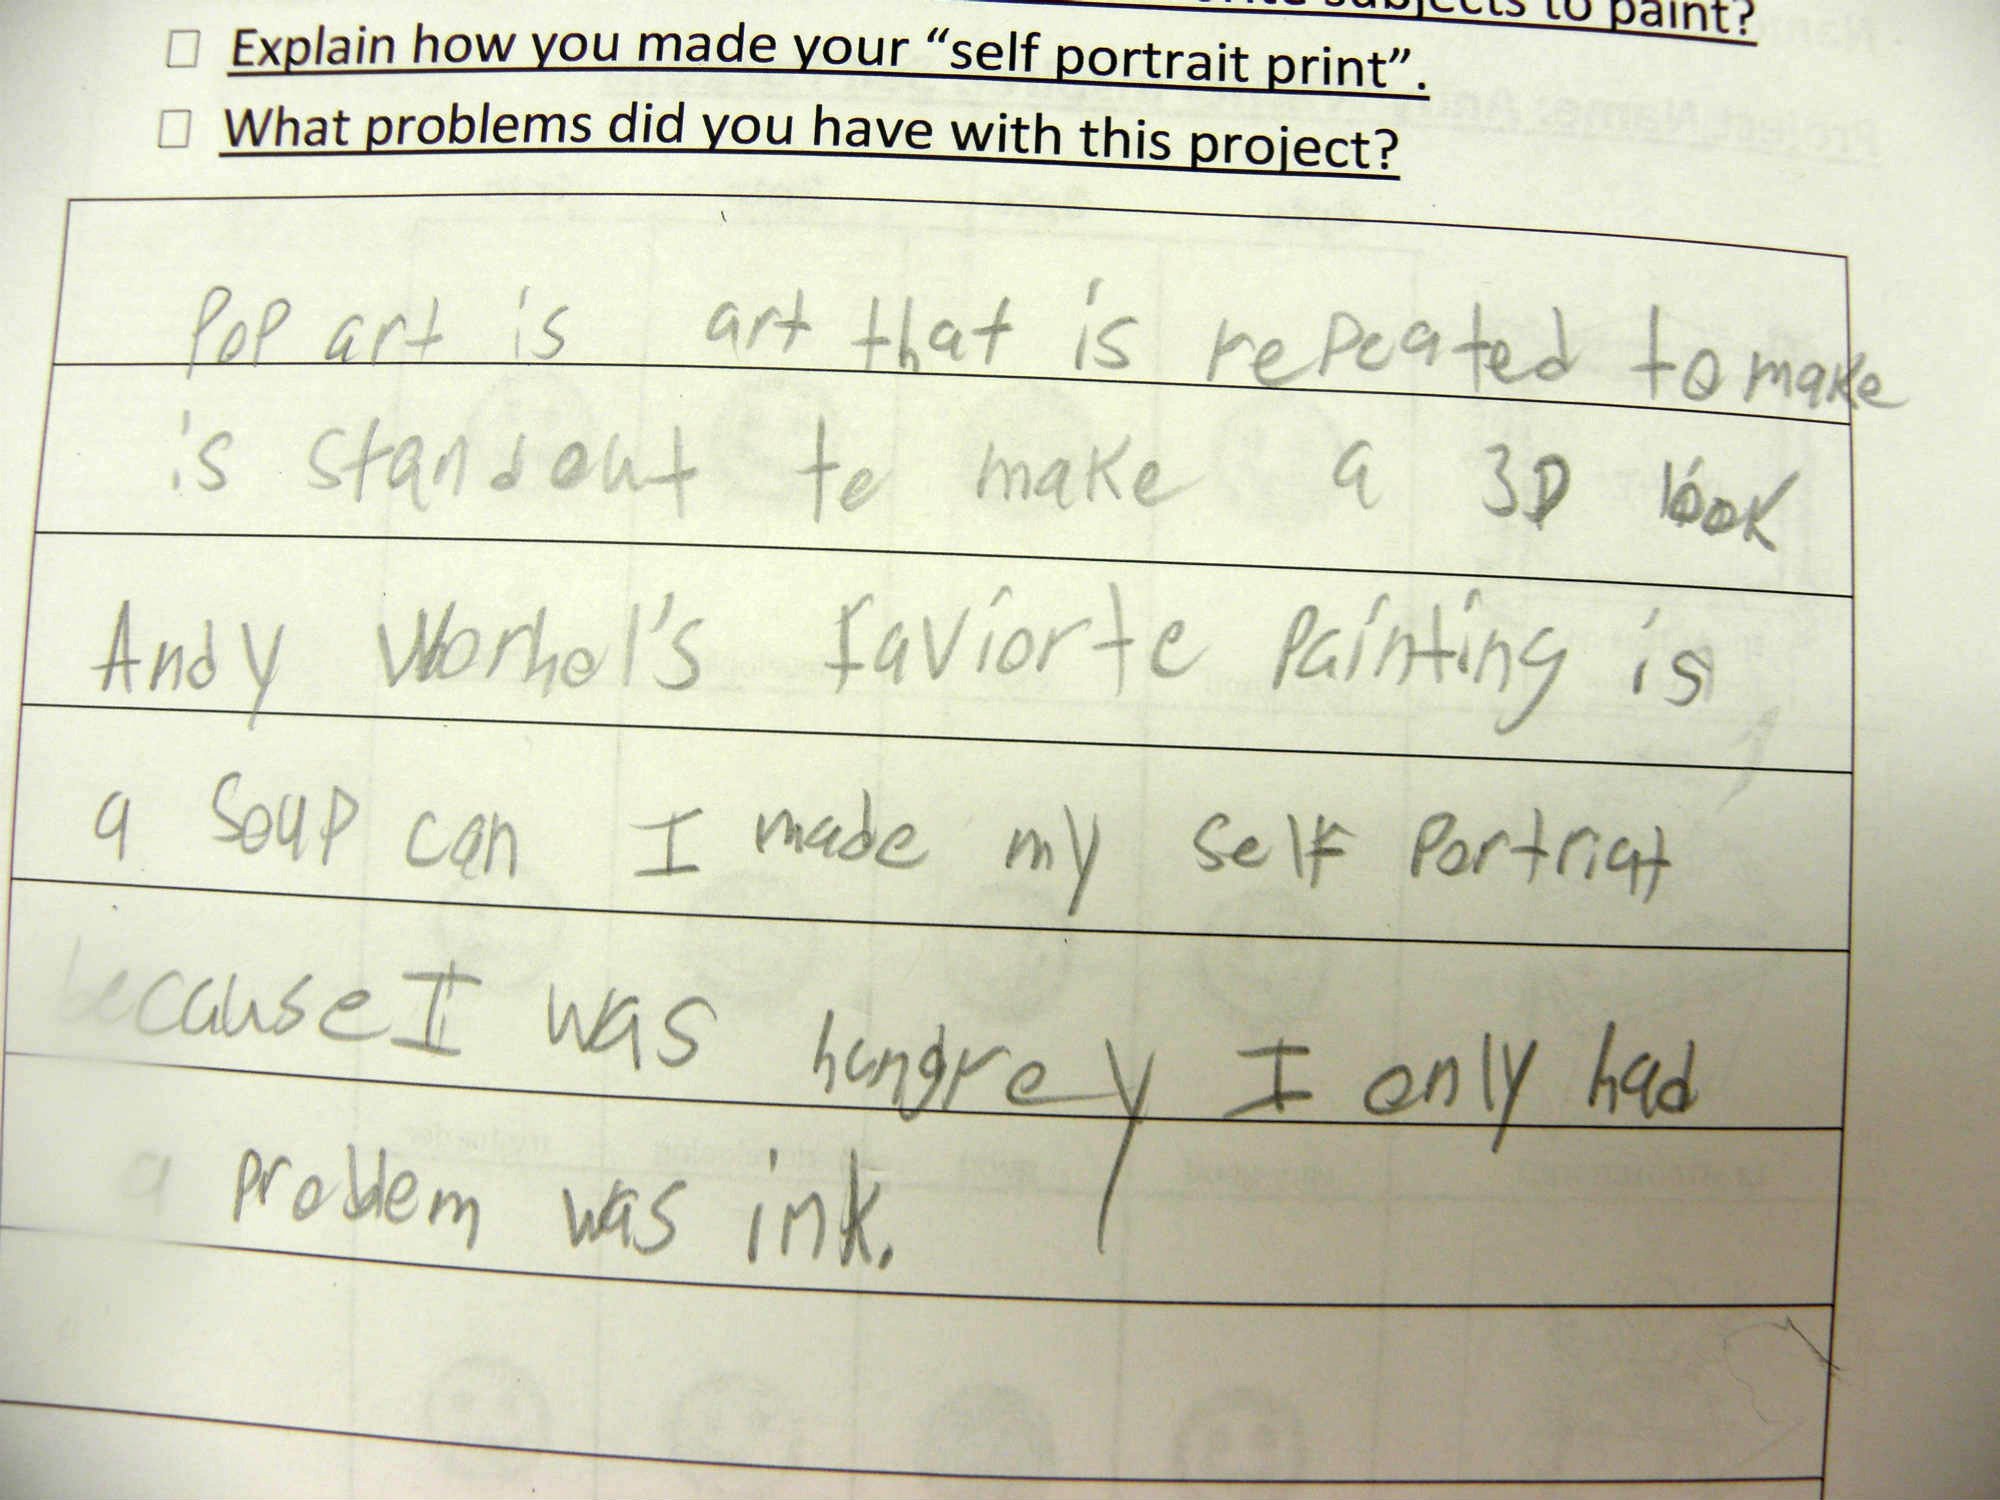 subjects to paint?
☐ Explain how you made your “self portrait print”.
☐ What problems did you have with this project?
Pop art is art that is repeated to make
is standout to make a 3D look
Andy Worhol's faviorte painting is
a soup can I made my self portriat
because I was hungrey I only had
a problem was ink.